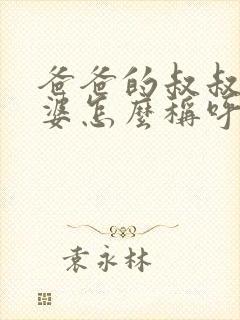 爸爸的叔叔
婆怎麼稱呼
袁永林